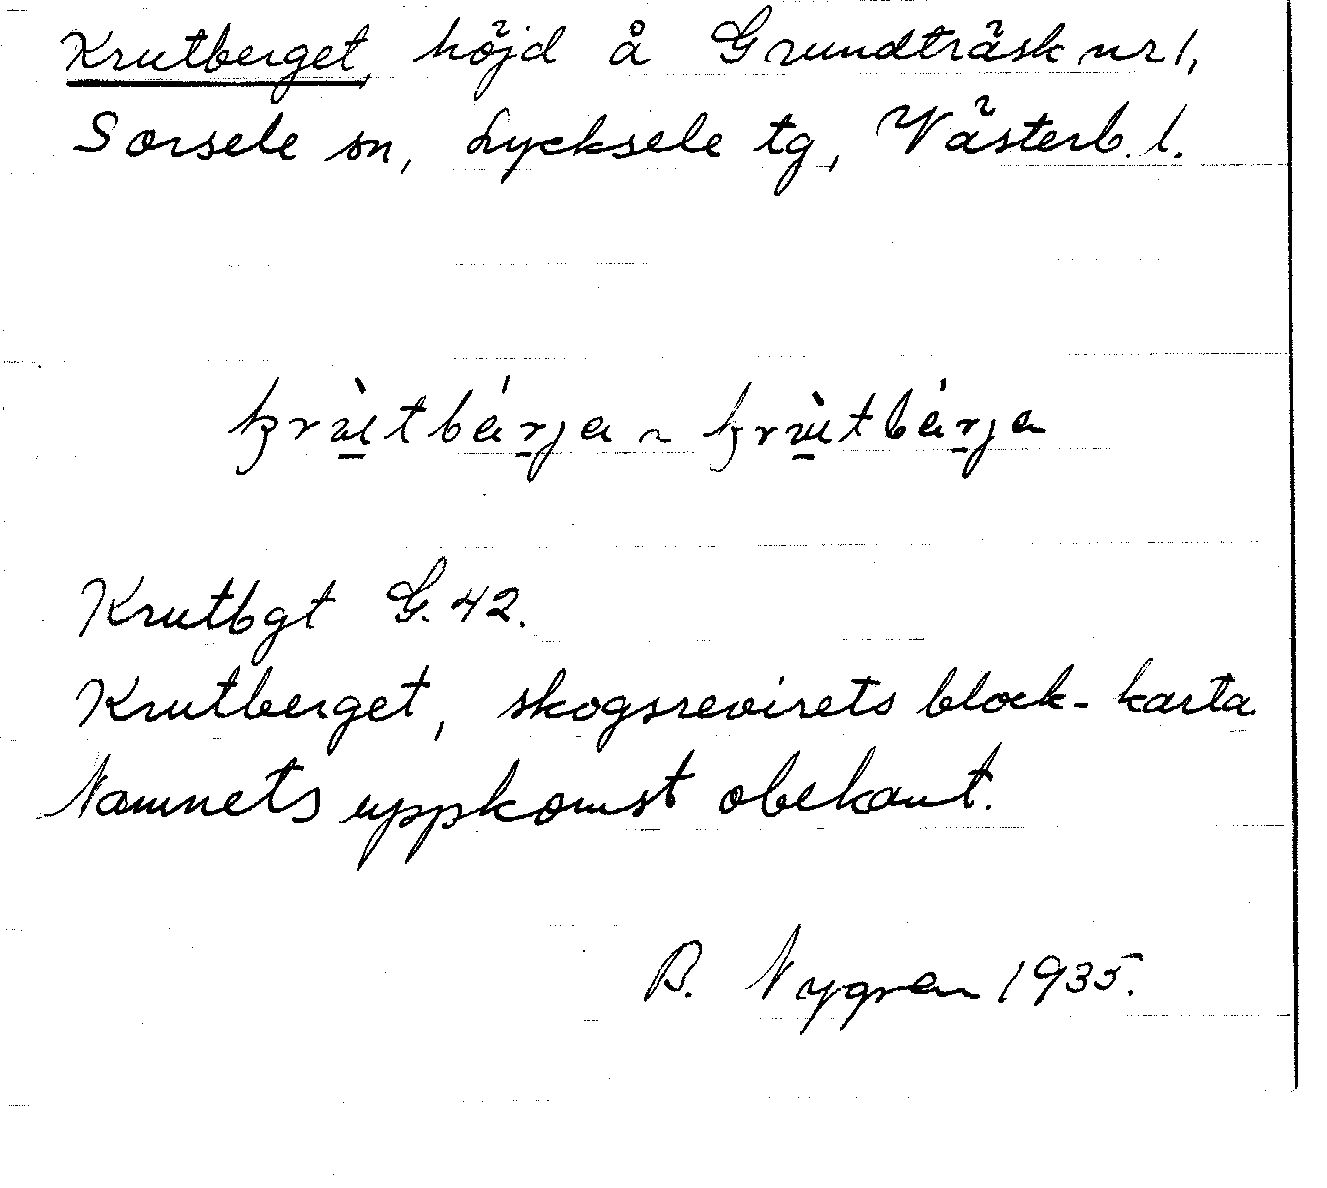 Krutberget, höjd å Grundträsk nr 1,
Sorsele sn, Lycksele tg, Västerb. l.
Krutbgt G. 42.
Krutberget, skogsrevirets block-karta
Namnets uppkomst obekant.
B. Nygren 1935.